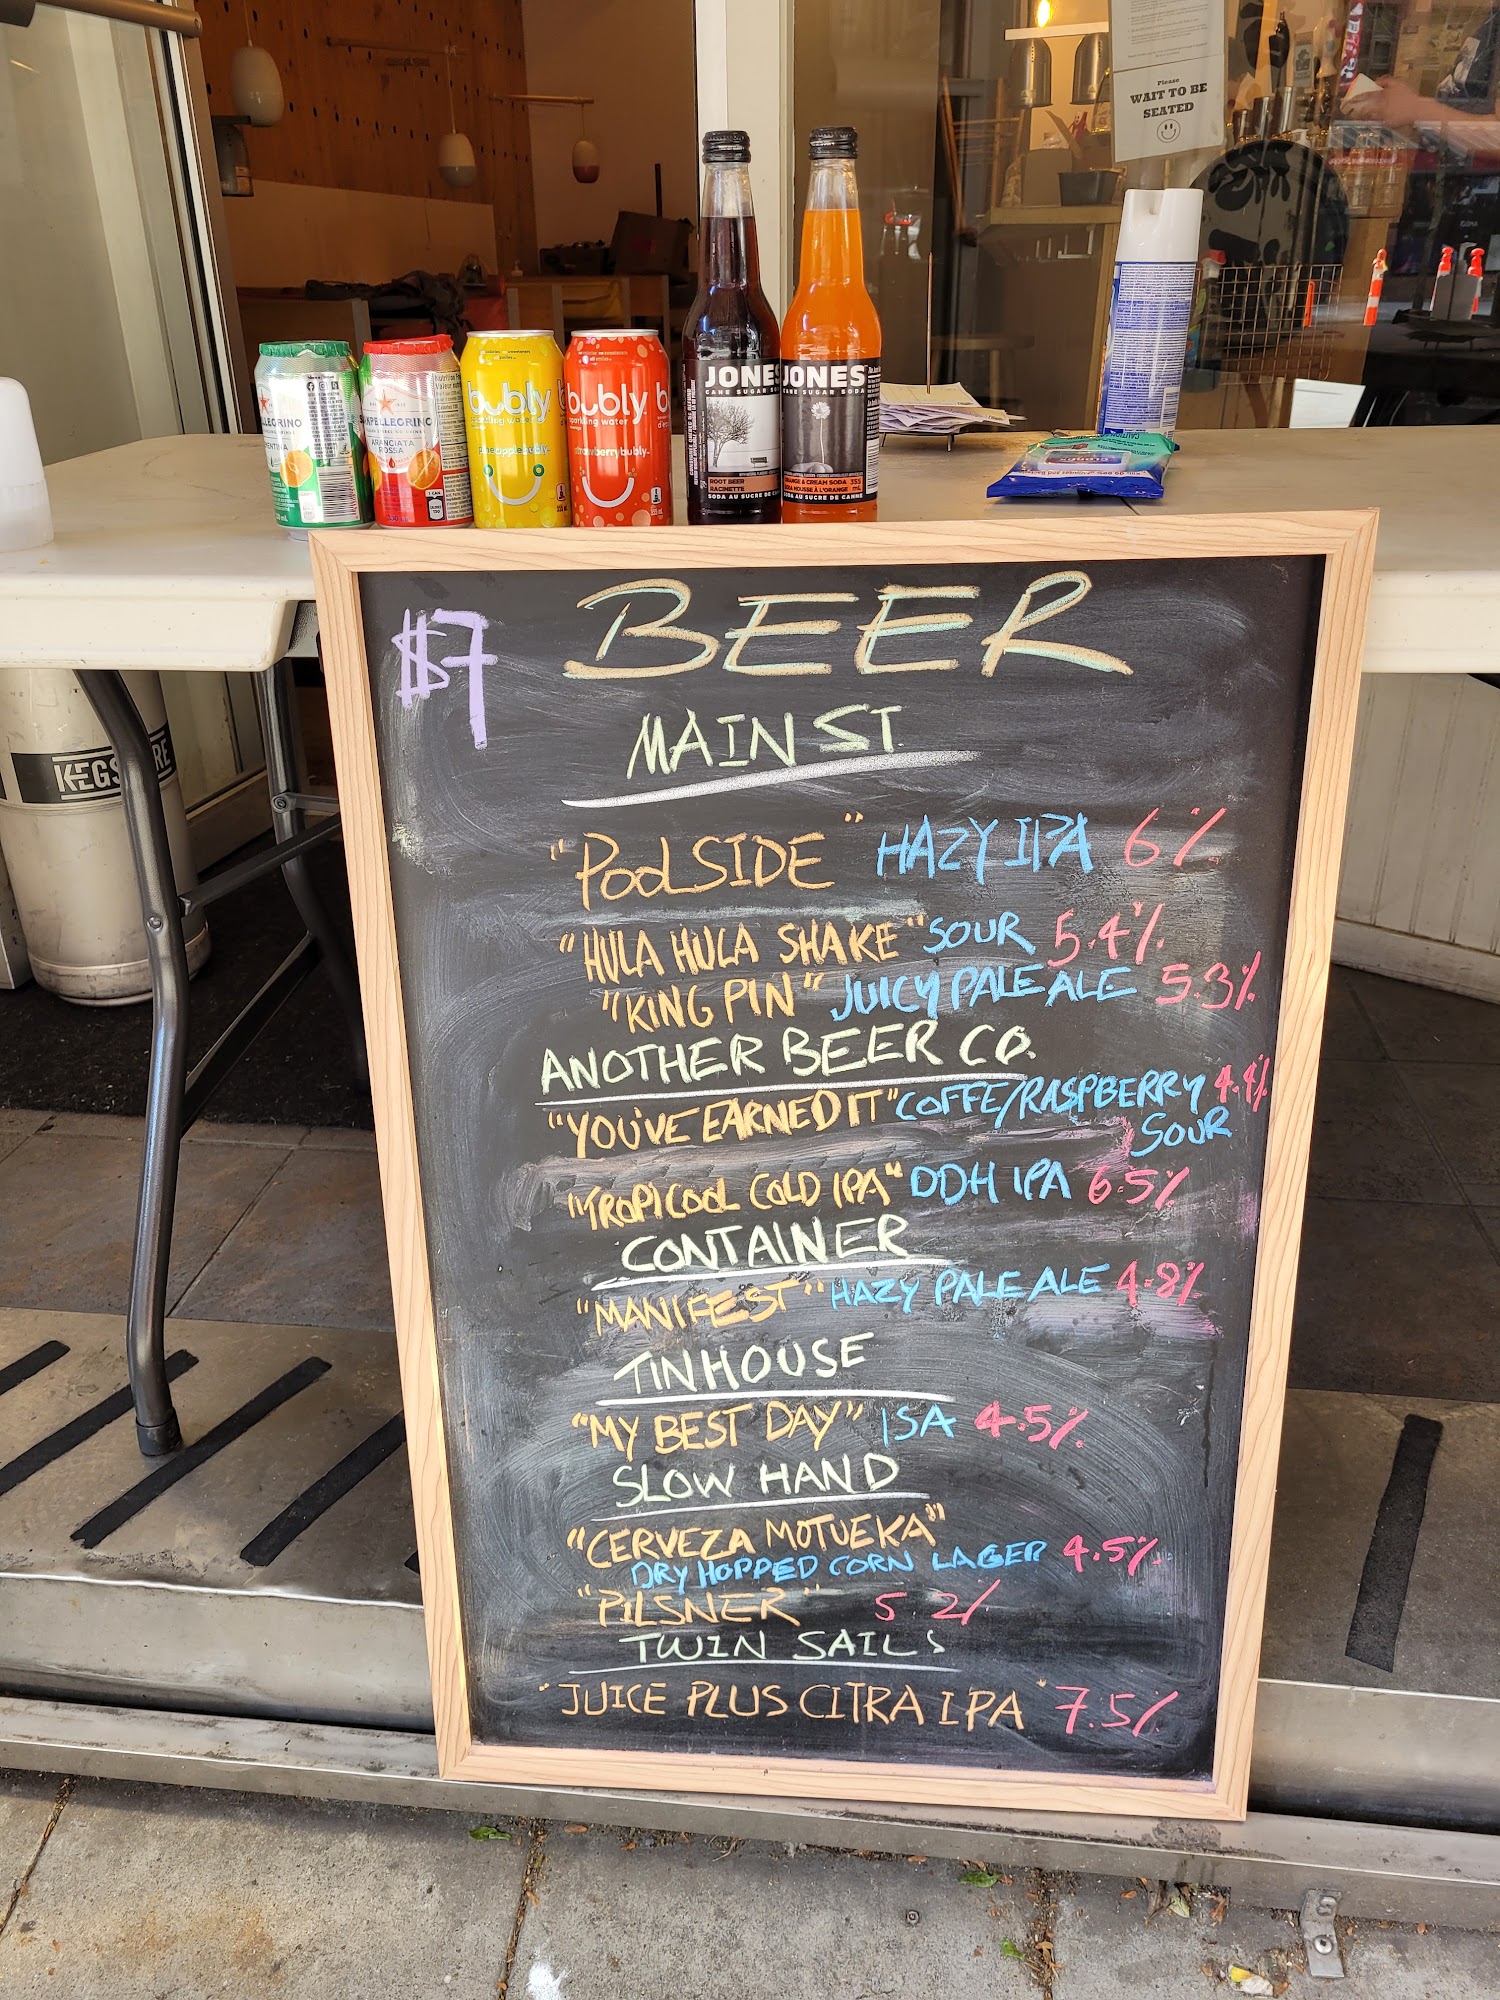 Please
WAIT TO BE
SEATED
PELLEGRINO
ARANCIATA
ROSSA
bubly
sparkling water
pineapplebubly
bubly
sparkling water
strawberrybubly
JONES
CANE SUGAR SODA
ROOT BEER
RACINETTE
SODA AU SUCRE DE CAN
JONES
CANE SUGAR SODA
ORANGE & CREAM SODA 355
MOUSSE À L'ORANGE mL
SODA AU SUCRE DE CANNE
KEGS RE
$7 BEER
MAIN ST.
"POOLSIDE" HAZY IPA 6%
"HULA HULA SHAKE" SOUR 5.4%
"KING PIN" JUICY PALE ALE 5.3%
ANOTHER BEER CO.
"YOU'VE EARNED IT" COFFE/RASPBERRY 4.4%
SOUR
"TROPICOOL COLD IPA" DDH IPA 6.5%
CONTAINER
"MANIFEST" HAZY PALE ALE 4.8%
TINHOUSE
"MY BEST DAY" ISA 4.5%
SLOW HAND
"CERVEZA MOTUEKA"
DRY HOPPED CORN LAGER 4.5%
"PILSNER" 5.2%
TWIN SAILS
"JUICE PLUS CITRA IPA" 7.5%